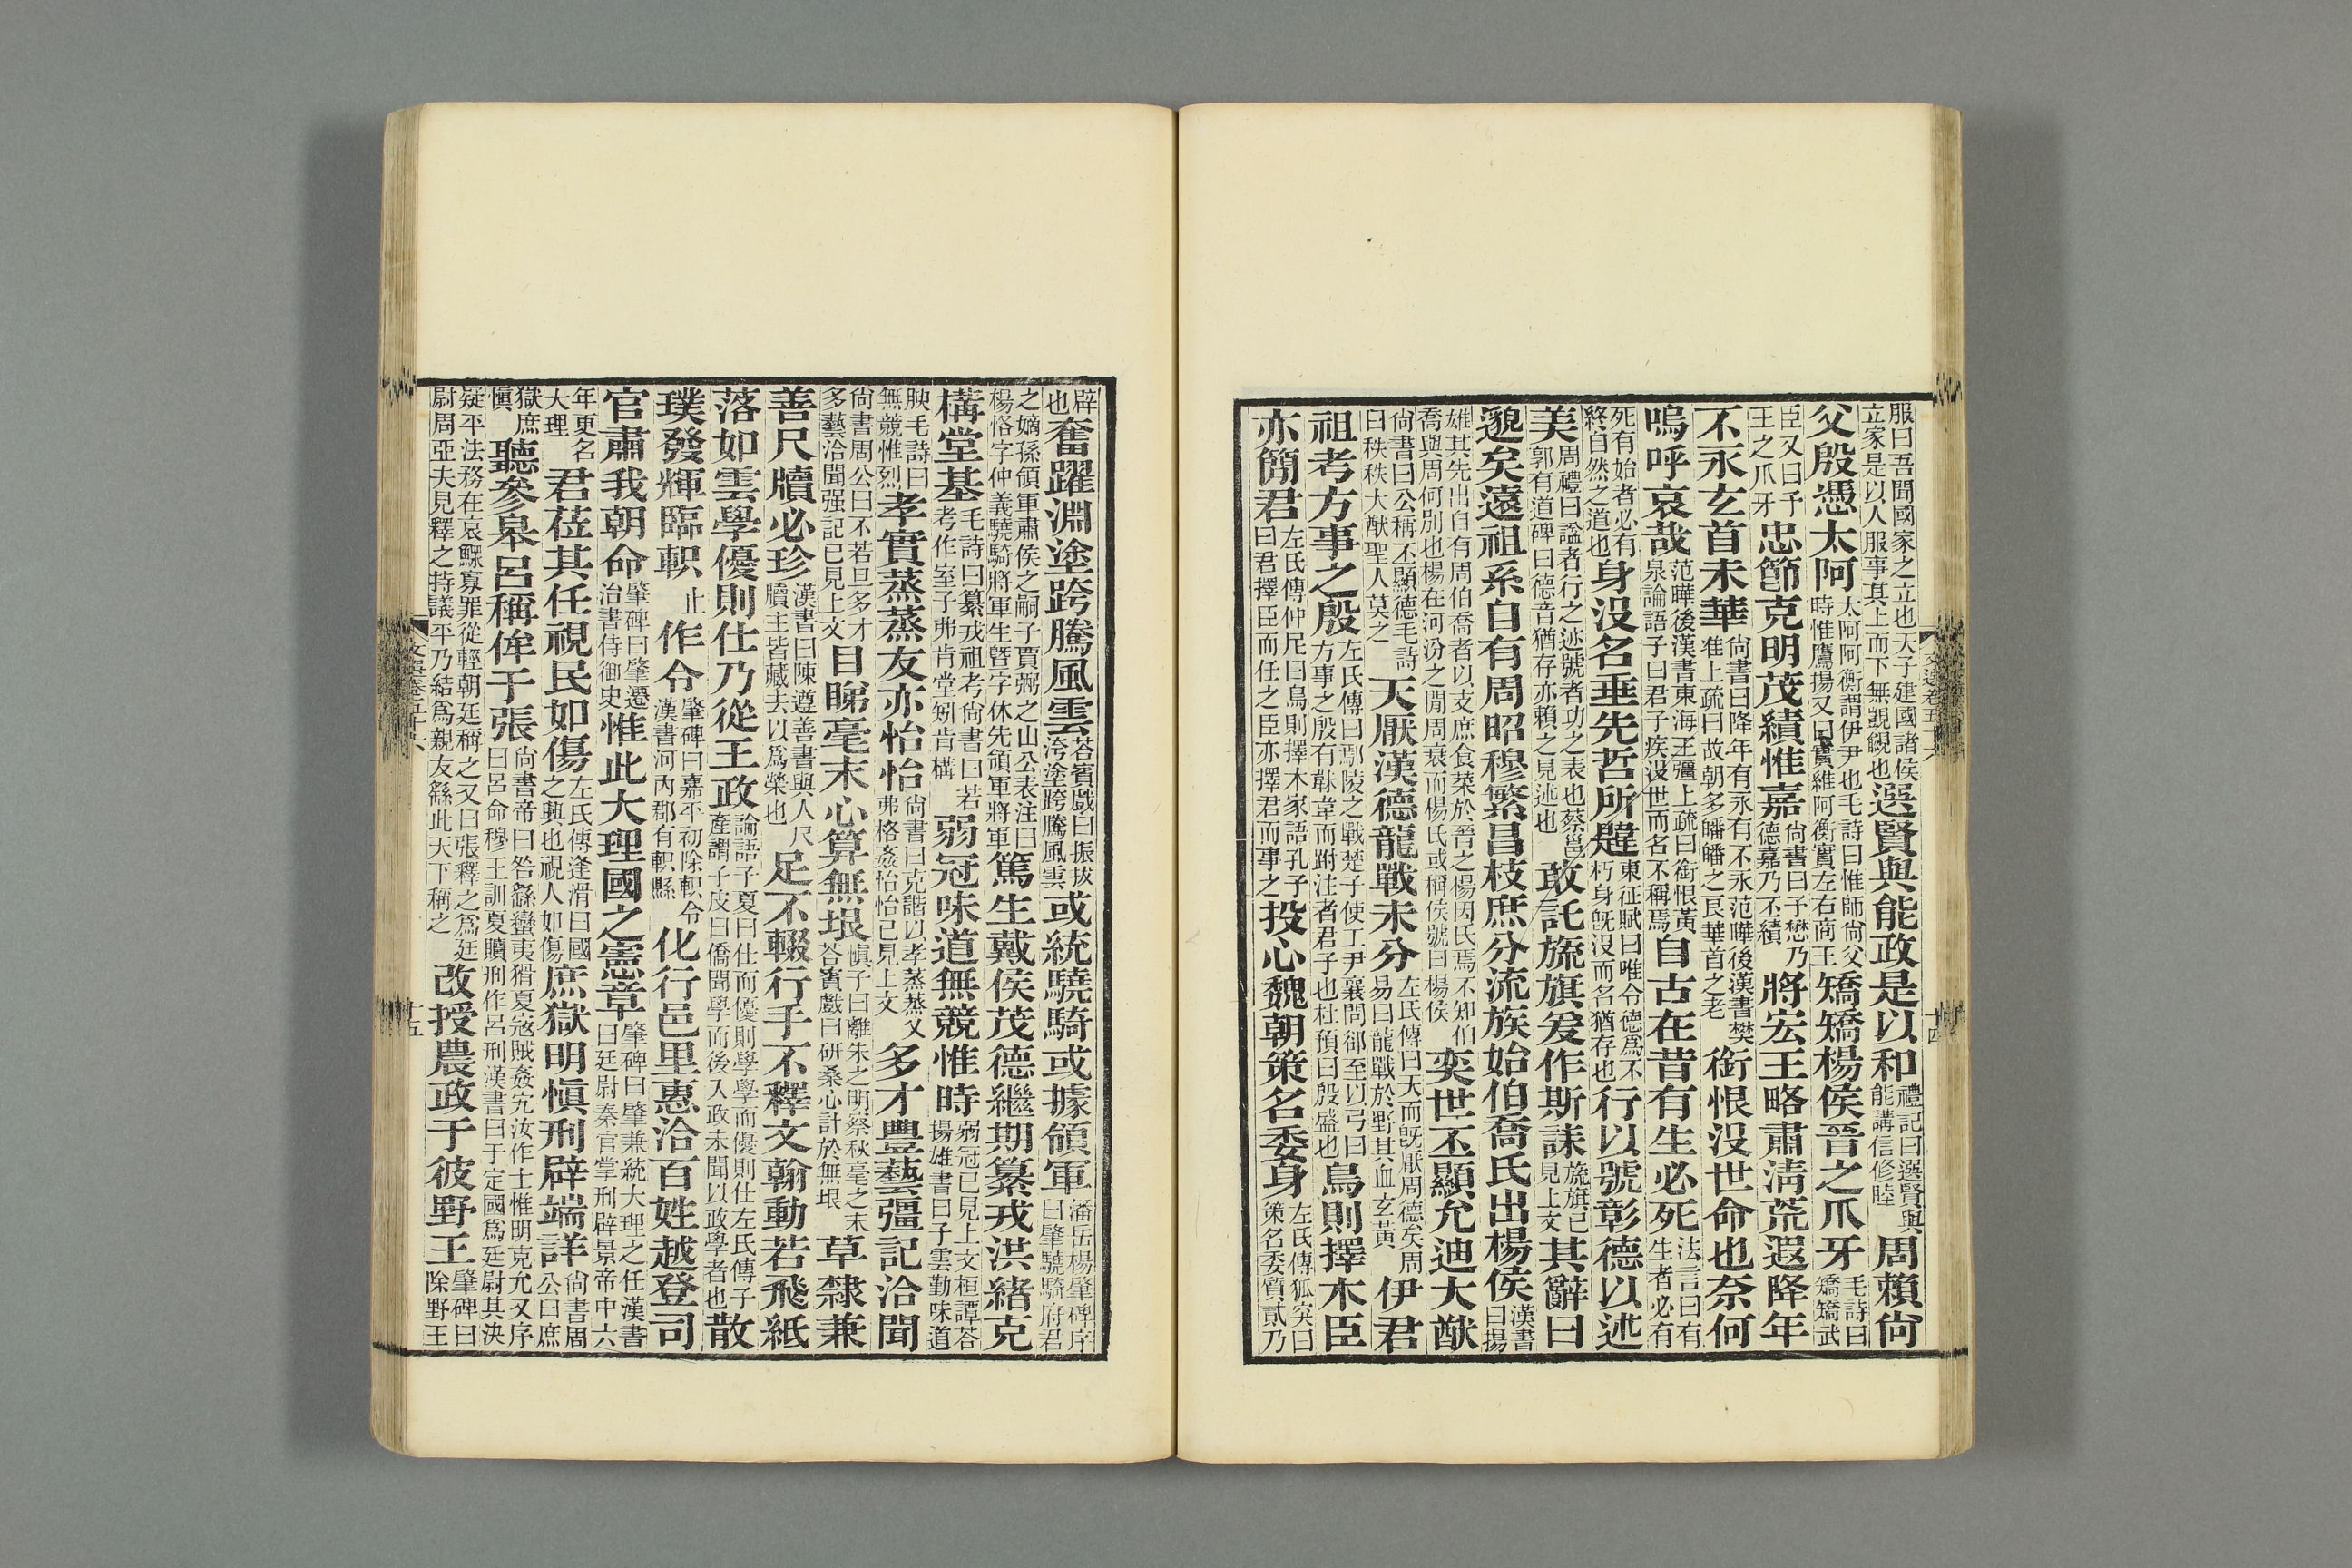 服曰吾聞國家之立也天子建國諸侯
立家是以人服事其上而下無覬覦也
選賢與能政是以和
禮記曰選賢與
能講信修睦
周賴尙
父殷憑太阿
太阿阿衡謂伊尹也毛詩曰惟師尙父
時惟鷹揚又曰實維阿衡實左右商王
矯矯楊侯晉之爪牙
毛詩曰
矯矯武
臣又曰予
王之爪牙
忠節克明茂績惟嘉
尙書曰予懋乃
德嘉乃丕績
將宏王略肅淸荒遐降年
不永玄首未華
尙書曰降年有永有不永范曄後漢書樊
准上疏曰故朝多皤皤之良華首之老
銜恨没世命也奈何
嗚呼哀哉
范曄後漢書東海王彊上疏曰銜恨黃
泉論語子曰君子疾没世而名不稱焉
自古在昔有生必死
法言曰有
生者必有
死有始者必有
終自然之道也
身没名垂先哲所韙
東征賦曰唯令德爲不
朽身既没而名猶存也
行以號彰德以述
美
周禮曰謚者行之迹號者功之表也蔡邕
郭有道碑曰德音猶存亦賴之見述也
敢託旒旗爰作斯誄
旒旗已
見上文
其辭曰
邈矣遠祖系自有周昭穆繁昌枝庶分流族始伯喬氏出楊侯
漢書
曰揚
雄其先出自有周伯喬者以支庶食菜於晉之楊因氏焉不知伯
喬與周何別也楊在河汾之閒周衰而楊氏或稱侯號曰楊侯
奕世丕顯允迪大猷
尙書曰公稱丕顯德毛詩
曰秩秩大猷聖人莫之
天厭漢德龍戰未分
左氏傳曰天而既厭周德矣周
易曰龍戰於野其血玄黃
伊君
祖考方事之殷
左氏傳曰鄢陵之戰楚子使工尹襄問郤至以弓曰
方事之殷有韎韋而跗注者君子也杜預曰殷盛也
鳥則擇木臣
亦簡君
左氏傳仲尼曰鳥則擇木家語孔子
曰君擇臣而任之臣亦擇君而事之
投心魏朝策名委身
左氏傳狐突曰
策名委質貳乃
辟
也
奮躍淵塗跨騰風雲
荅賓戲曰振拔
洿塗跨騰風雲
或統驍騎或據領軍
潘岳楊肇碑序
曰肇驍騎府君
之嫡孫領軍肅侯之嗣子賈弼之山公表注曰
楊恪字仲義驍騎將軍生暨字休先領軍將軍
篤生戴侯茂德繼期纂戎洪緒克
構堂基
毛詩曰纂戎祖考尙書曰若
考作室子弗肯堂矧肯構
弱冠味道無競惟時
弱冠已見上文桓譚荅
揚雄書曰子雲勤味道
腴毛詩曰
無競惟烈
孝實蒸蒸友亦怡怡
尙書曰克諧以孝蒸蒸乂
弗格姦怡怡已見上文
多才豊藝彊記洽聞
尙書周公曰不若旦多才
多藝洽聞强記已見上文
目睇毫末心算無垠
愼子曰離朱之明察秋毫之末
荅賓戲曰研桑心計於無垠
草隸兼
善尺牘必珍
漢書曰陳遵善書與人尺
牘主皆藏去以爲榮也
足不輟行手不釋文翰動若飛紙
落如雲學優則仕乃從王政
論語子夏曰仕而優則學學而優則仕左氏傳子
產謂子皮曰僑聞學而後入政未聞以政學者也
散
璞發輝臨軹
止
作令
肇碑曰嘉平初除軹令
漢書河內郡有軹縣
化行邑里惠洽百姓越登司
官肅我朝命
肇碑曰肇遷
治書侍御史
惟此大理國之憲章
肇碑曰肇兼統大理之任漢書
曰廷尉秦官掌刑辟景帝中六
年更名
大理
君莅其任視民如傷
左氏傳逢滑曰國
之興也視人如傷
庶獄明愼刑辟端詳
尙書周
公曰庶
獄庶
愼
聽參皋呂稱侔于張
尙書帝曰咎繇蠻夷猾夏寇賊姦宄汝作士惟明克允又序
曰呂命穆王訓夏贖刑作呂刑漢書曰于定國爲廷尉其決
疑平法務在哀鰥寡罪從輕朝廷稱之又曰張釋之爲廷
尉周亞夫見釋之持議平乃結爲親友繇此天下稱之
改授農政于彼野王
肇碑曰
除野王
十四
十五